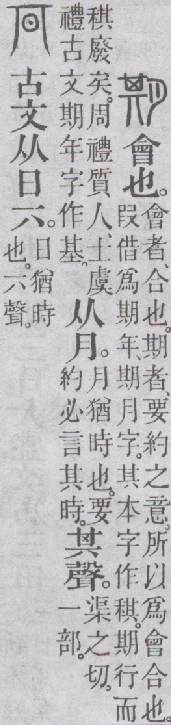 會也。會者、合也。期者、要約之意。所以爲會合也。叚借爲期年、期月字。其本字作稘。期行而
稘廢矣。周禮質人、士虞禮古文期年字作基。从月。月猶時也。要約必言其時。其聲。渠之切。一部。
古文从日丌。日猶時也。丌聲。